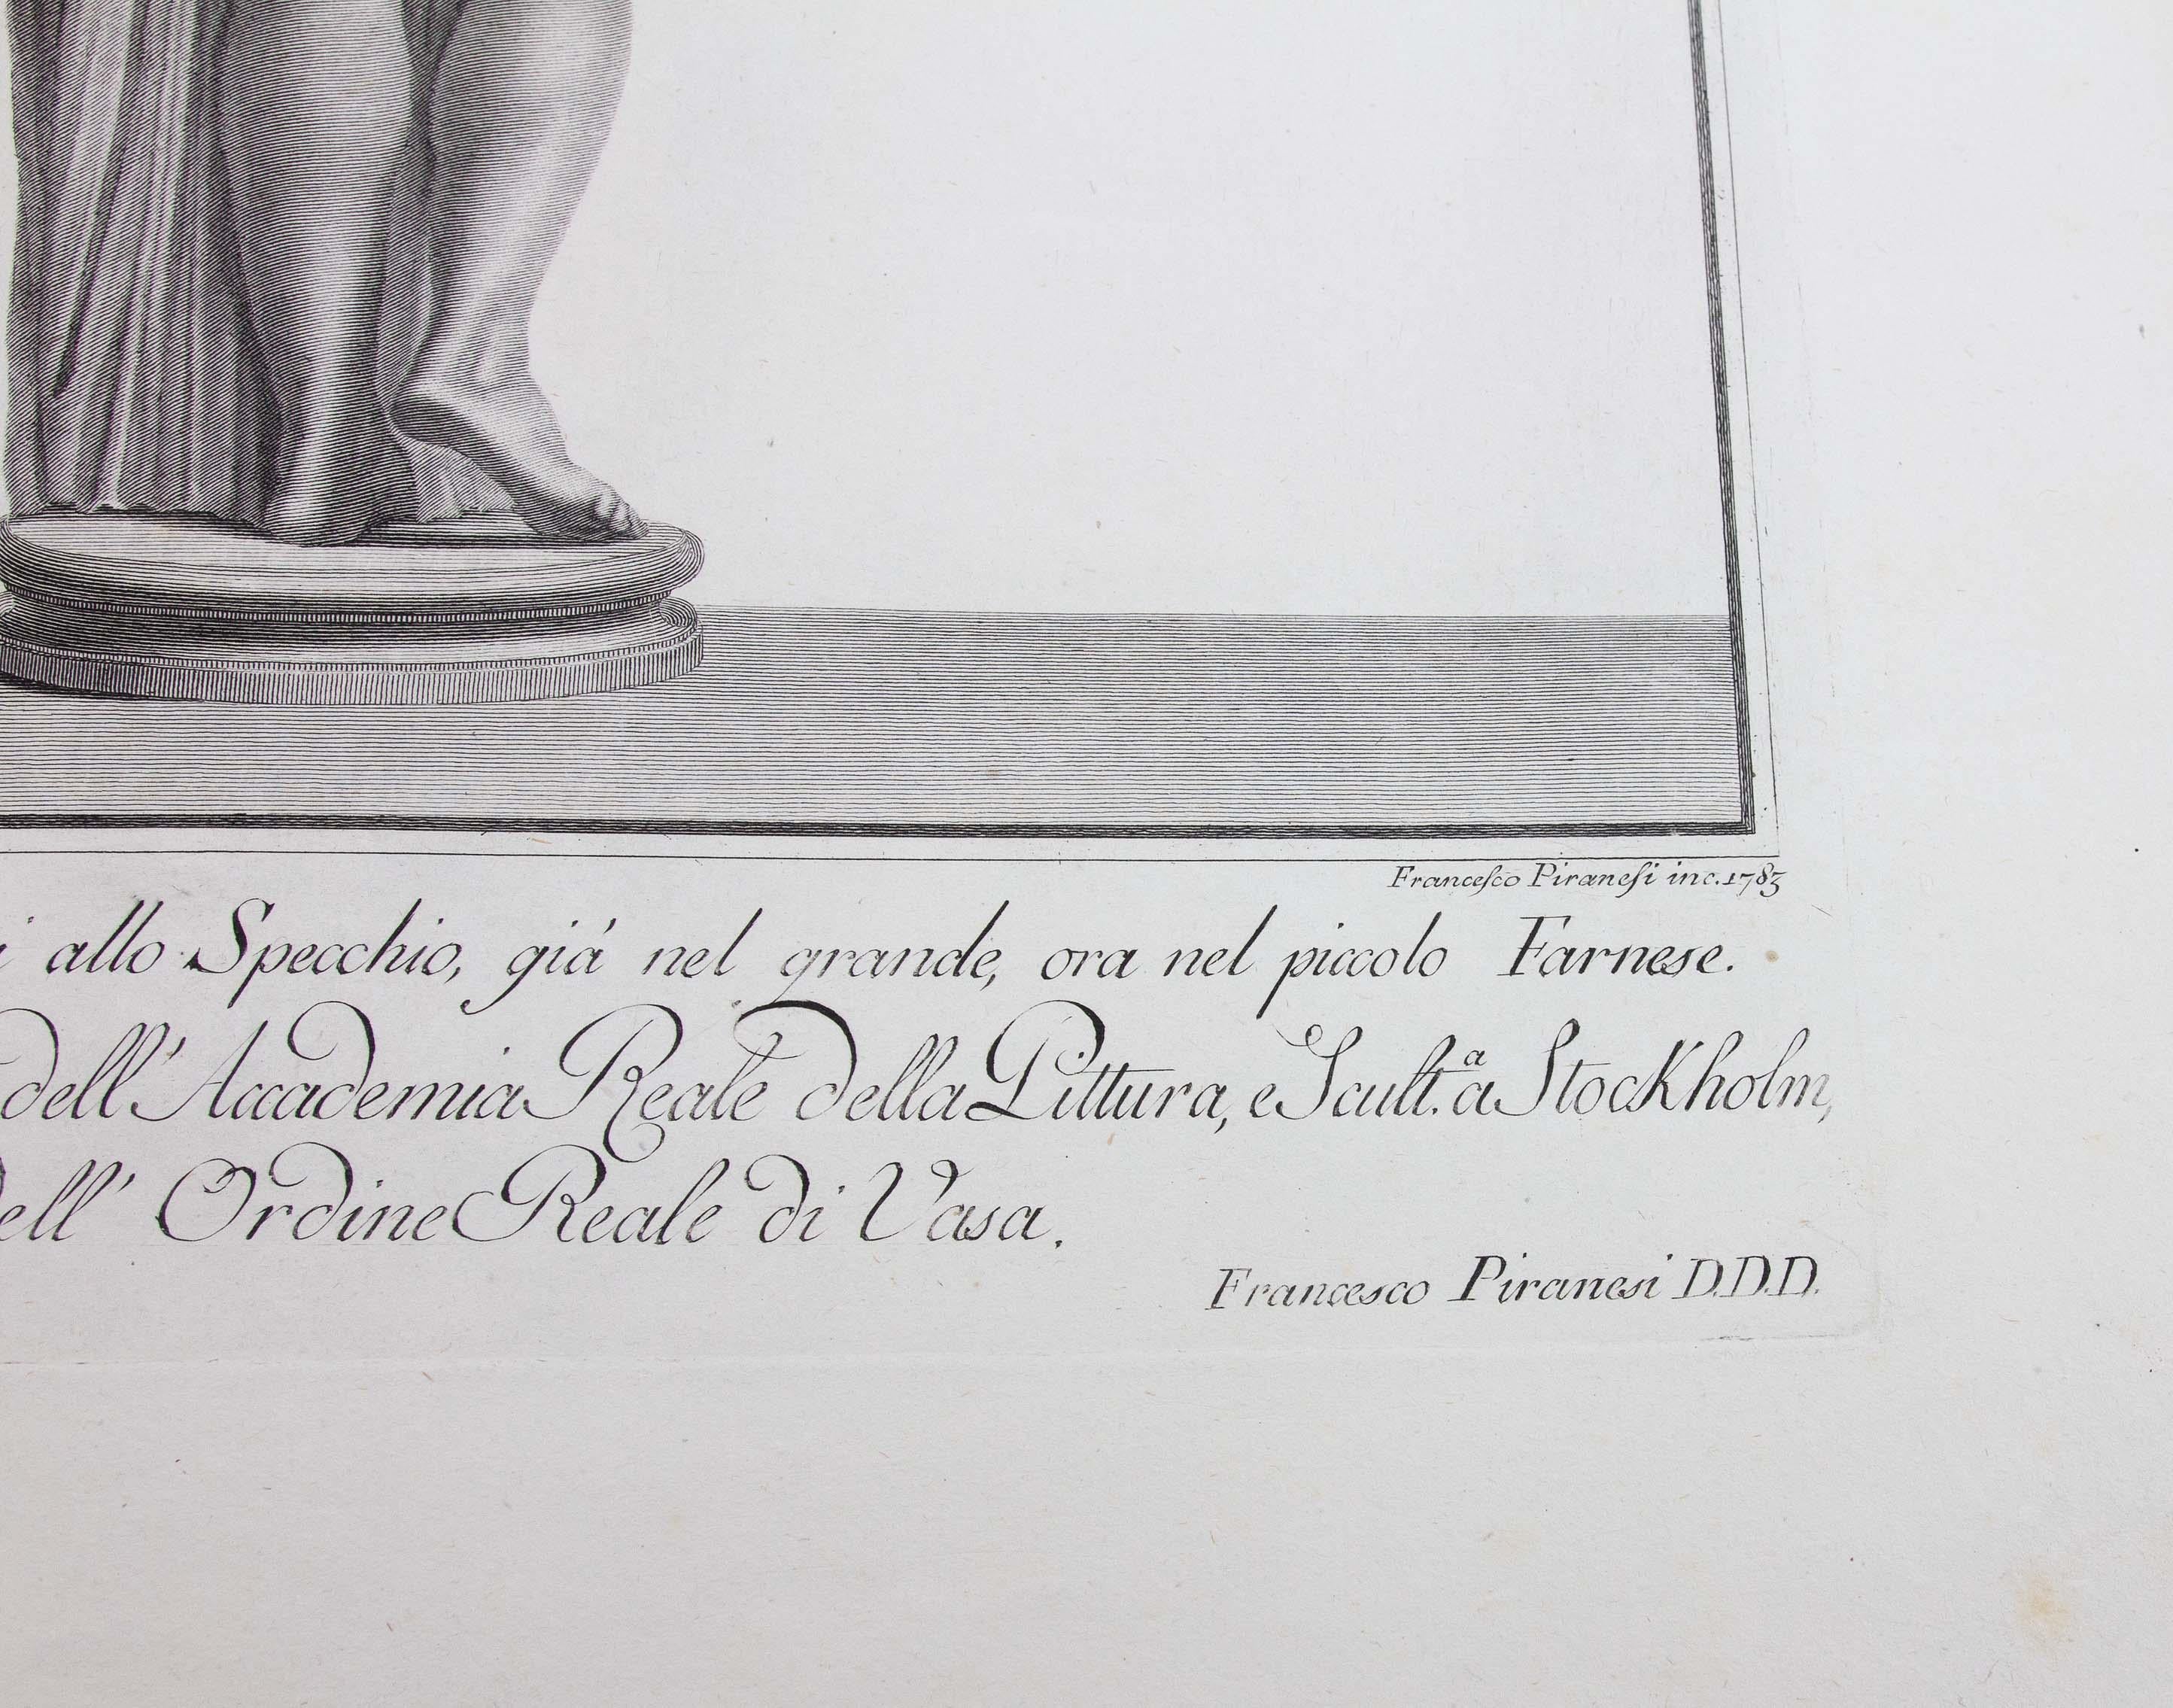 Francesco Piranesi inc. 1783
i allo Specchio, giá nel grande, ora nel piccolo Farnese.
dell' Accademia Reale della Pittura, e Scult.ª a Stockholm,
dell' Ordine Reale di Vasa.
Francesco Piranesi D.D.D.